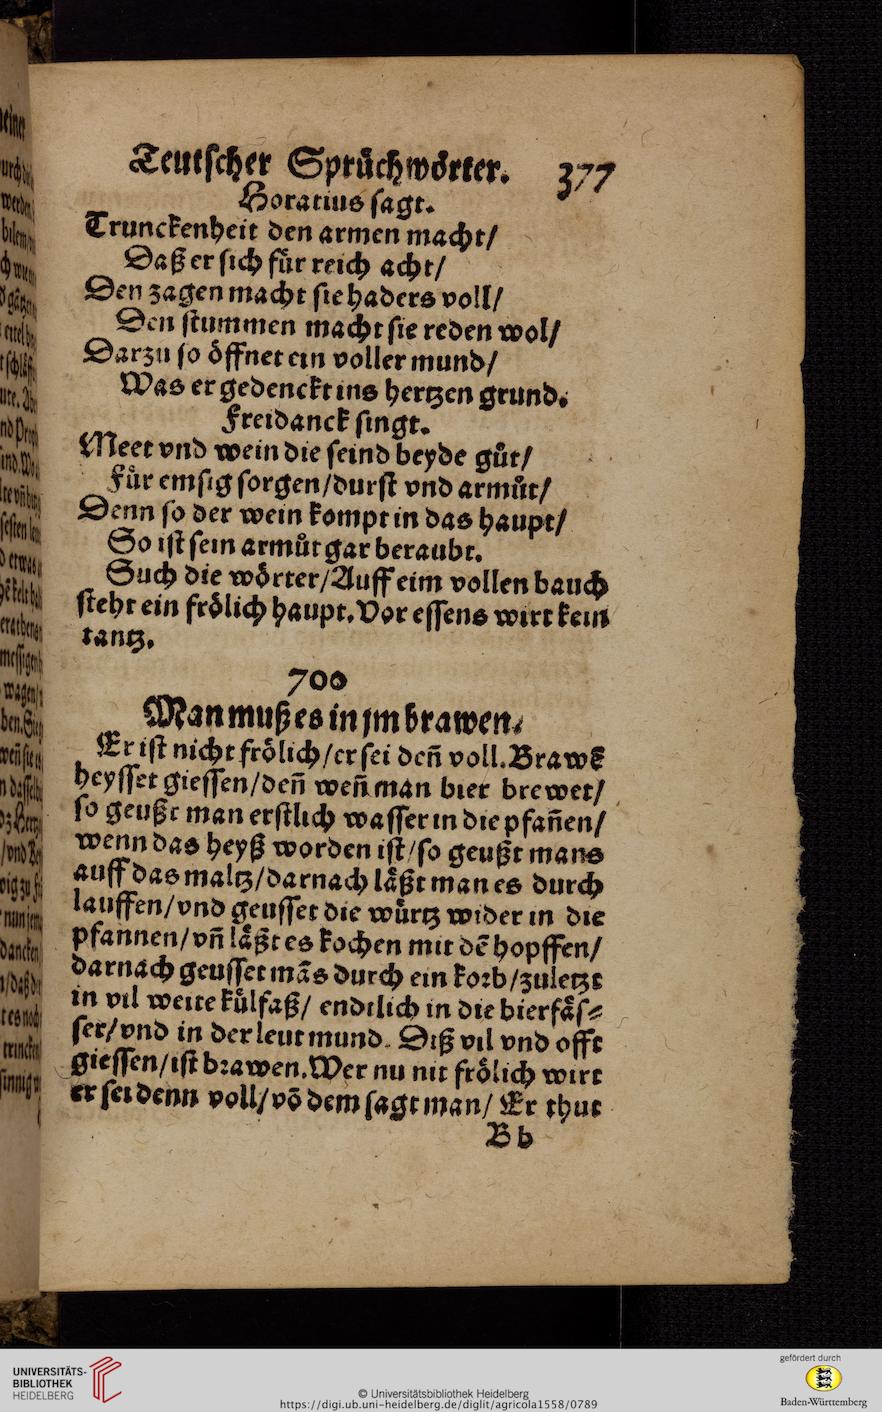 Teutſcher Spruͤchwoͤrter. 377
Horatius ſagt.
Trunckenheit den armen macht/
Daß er ſich fuͤr reich acht/
Den zagen macht ſie haders voll/
Den ſtummen macht ſie reden wol/
Darzu ſo oͤffnet ein voller mund/
Was er gedenckt ins hertzen grund.
Freidanck ſingt.
Meet vnd wein die ſeind beyde guͤt/
Fuͤr emſig ſorgen/durſt vnd armuͤt/
Denn ſo der wein kompt in das haupt/
So iſt ſein armuͤt gar beraubt.
Such die woͤrter/Auff eim vollen bauch
ſteht ein froͤlich haupt. Vor eſſens wirt kein
tantz.
700
Man muß es in jm brawen.
Er iſt nicht froͤlich/er ſei deñ voll. Brawẽ
heyſſet gieſſen/deñ weñ man bier brewet/
ſo geußt man erſtlich waſſer in die pfañen/
wenn das heyß worden iſt/ſo geußt mans
auff das maltz/darnach laͤßt man es durch
lauffen/vnd geuſſet die wuͤrtz wider in die
pfannen/vñ laͤßt es kochen mit dẽ hopffen/
darnach geuſſet mãs durch ein korb/zuletzt
in vil weite kuͤlfaß/ endtlich in die bierfaͤſ⸗
ſer/vnd in der leut mund. Diß vil vnd offt
gieſſen/iſt brawen. Wer nu nit froͤlich wirt
er ſei denn voll/võ dem ſagt man/ Er thut
Bb
UNIVERSITÄTS-
BIBLIOTHEK
HEIDELBERG
© Universitätsbibliothek Heidelberg
https://digi.ub.uni-heidelberg.de/diglit/agricola1558/0789
gefördert durch
Baden-Württemberg